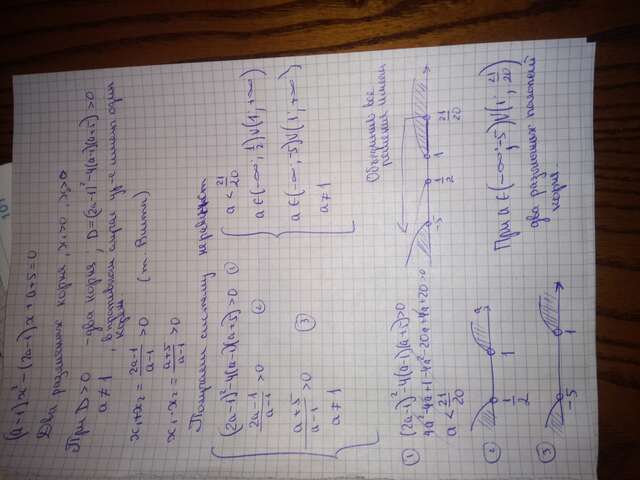 (a-1)x² - (2a-1)x + a+5 = 0
Два различных корня, x₁>0, x₂>0
При D>0 - два корня, D=(2a-1)²-4(a-1)(a+5)>0
a≠1, в противном случае ур-е имеет один корень
x₁+x₂ = \frac{2a-1}{a-1} > 0 (т. Виета)
x₁·x₂ = \frac{a+5}{a-1} > 0
Получаем систему неравенств
(2a-1)²-4(a-1)(a+5)>0 ① a < \frac{21}{20}
\frac{2a-1}{a-1} > 0 ② a∈(-∞; \frac{1}{2})∪(1; +∞)
\frac{a+5}{a-1} > 0 ③ a∈(-∞; -5)∪(1; +∞)
a≠1 a≠1
① (2a-1)²-4(a-1)(a+5)>0
4a²-4a+1-4a²-20a+4a+20>0
a < \frac{21}{20}
② \frac{1}{2} 1 a
③ -5 1
Объединив все
решения имеем
-5 \frac{1}{2} 1 \frac{21}{20}
При a∈(-∞; -5)∪(1; \frac{21}{20})
два различных
корня.